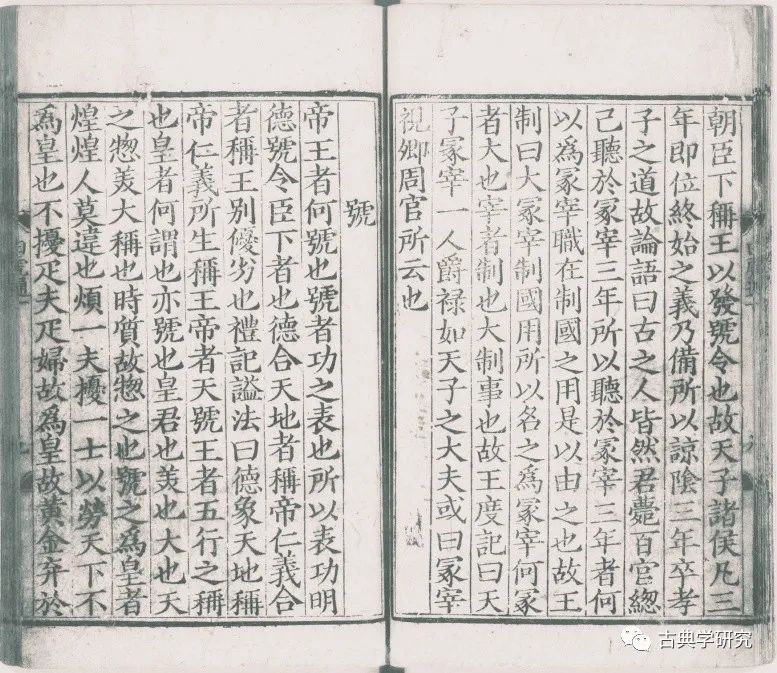 朝臣下稱王以發號令也故天子諸侯凡三
年即位終始之義乃備所以諒陰三年卒孝
子之道故論語曰古之人皆然君薨百官緫
己聽於冢宰三年所以聽於冢宰三年者何
以為冢宰職在制國之用是以由之也故王
制曰大冢宰制國用所以名之為冢宰何冢
者大也宰者制也大制事也故王度記曰天
子冢宰一人爵祿如天子之大夫或曰冢宰
視卿周官所云也
號
帝王者何號也號者功之表也所以表功明
德號令臣下者也德合天地者稱帝仁義合
者稱王別優劣也禮記謚法曰德象天地稱
帝仁義所生稱王帝者天號王者五行之稱
也皇者何謂也亦號也皇君也美也大也天
之惣美大稱也時質故惣之也號之為皇者
煌煌人莫違也煩一夫擾一士以勞天下不
為皇也不擾疋夫疋婦故為皇故黃金弃於
古典学研究